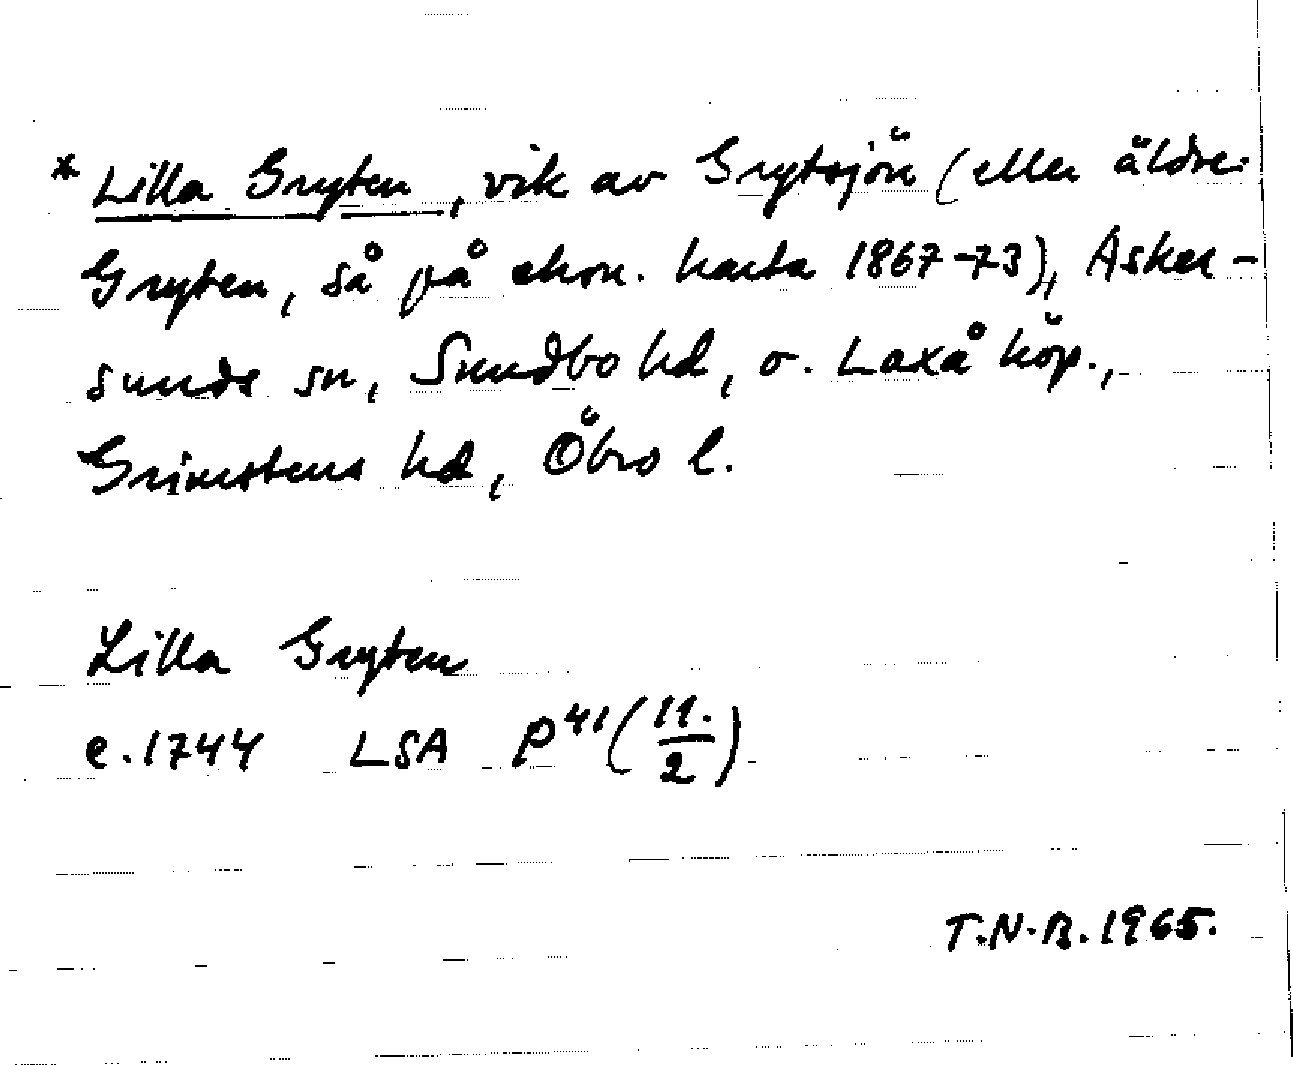 * Lilla Gryten, vik av Grytsjön (eller äldre
Gryten, så på ekon. karta 1867-73), Asker-
sunds sn, Sundbo hd, o. Laxå köp.,
Grimstens hd, Öbro l.
Lilla Gryten
e. 1744 LSA P⁴¹(11./2)
T.N.B. 1965.